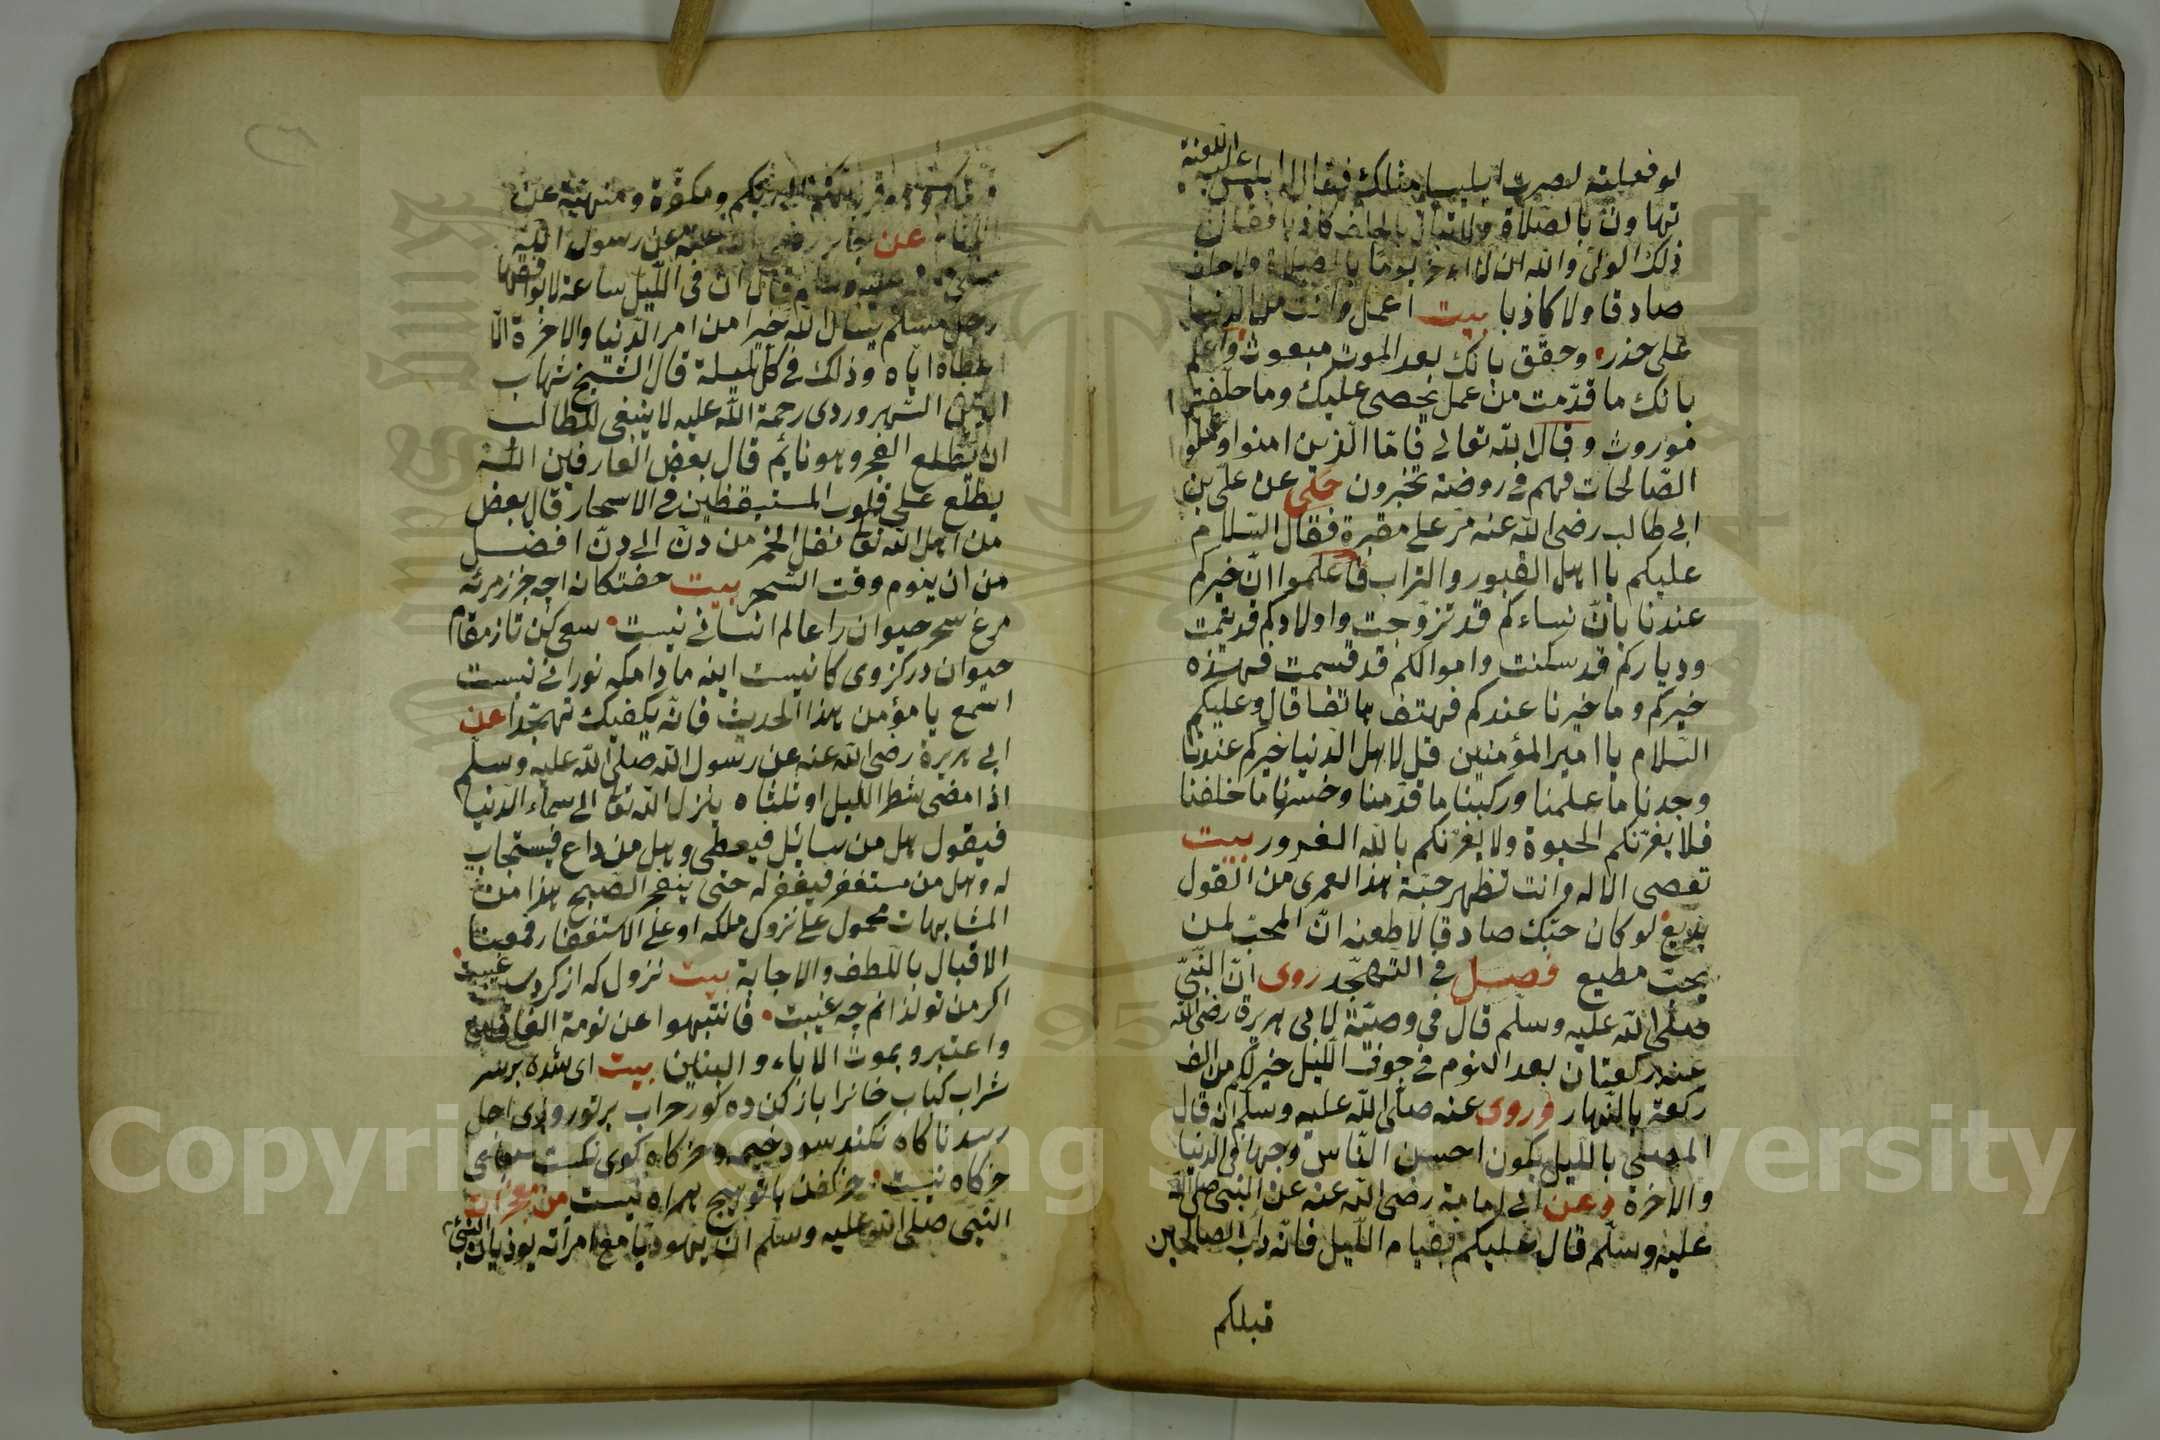 لو فعلته لصرت ابليسا مثلك فقال ابليس عليه اللعنة
تهاون بالصلاة ولا تبال بالحلف كاذبا فقال
ذلك الولى والله ان لا اءخر يوما بالصلاة ولا حلف
صادقا ولا كاذبا بيت اعمل وانت من الدنيا
على حذر وحقق بانك بعد الموت مبعوث واعلم
بانك ما قدّمت من عمل يحصى عليك وما خلّفت
موروث وقال الله تعالى فامّا الّذين امنوا وعملوا
الصّالحات فهم فى روضة يحبرون حكى عن علىّ بن
ابى طالب رضى الله عنه مرّ على مقبرة فقال السّلام
عليكم يا اهل القبور والتراب فاعلموا انّ خيركم
عندنا بانّ نساءكم قد تزوّجت واولادكم قد يتمت
ودياركم قد سكنت واموالكم قد قسمت فهذه
خيركم وما خيرنا عندكم فهتف هاتفا قال وعليكم
السّلام يا امير المؤمنين قل لاهل الدّنيا خيركم عندنا
وجدنا ما عملنا وركبنا ما قدّمنا وخسرنا ما خلفنا
فلا يغرّنكم الحيوة ولا يغرّنكم بالله الغرور بيت
تعصى الاله وانت تظهر حبّه هذا لعمرى من القول
بديع لو كان حبّك صادقا لاطعته انّ المحبّ لمن
يحبّ مطيع فصل فى التهجّد روى انّ النّبىّ
صلّى الله عليه وسلّم قال فى وصيّة لابى هريرة رضى الله
عنه ركعتان بعد النوم فى جوف اللّيل خير لكم من الف
ركعة بالنّهار وروى عنه صلّى الله عليه وسلّم انه قال
المصلّى بالليل يكون احسن النّاس وجها فى الدّنيا
والاخرة وعن ابى امامة رضى الله عنه عن النبى صلى الله
عليه وسلّم قال عليكم بقيام اللّيل فانّه دأب الصالحين
قبلكم
قبلكم وهو قربة لكم الى ربكم ومكفّرة ومنهيّة عن
عن جابر رضى الله عنه عن رسول الله
عليه وسلم قال ان فى اللّيل ساعة لا يوافقها
رجل مسلم يسأل الله خيرا من امر الدّنيا والاخرة الّا
اعطاه ايّاه وذلك فى كلّ ليلة قال الشّيخ شهاب
الدّين السّهروردى رحمة الله عليه لا ينبغى للطالب
ان يطلع الفجر وهو نائم قال بعض العارفين انّ الله
يطلع على قلوب المستيقظين فى الاسحار قال بعض
من اهل الله تع نقل الخمر من دنّ الى دنّ افضل
من ان ينوم وقت السّحر بيت خفتكان اچه خبر زمرئه
مرغ سحر حيوان را عالم انسانى نيست سعى كن تا ز مقام
حيوان در كزوى كانيست اينه مادامكه نورانى نيست
اسمع يا مؤمن هذا الحديث فانّه يكفيك تهجّدا عن
ابى هريرة رضى الله عنه عن رسول الله صلى الله عليه وسلّم
اذا مضى شطر اللّيل او ثلثاه ينزل الله تع الى سماء الدّنيا
فيقول هل من سائل فيعطى وهل من داع فيستجاب
له وهل من مستغفر فيغفر له حتى ينفجر الصّبح هذا من
المتشابهات محمول على نزول ملكه او على الاستغفار فمعنا
الاقبال باللّطف والاجابة بيت نزول كه از كردس غيبت
اكر من تولد انم چه غيبت فانتبهوا عن نومة الغافلين
واعتبرو بموت الاباء والبنين بيت اى شده بر سر
شراب كباب خانرا باز كن ده كور خراب بر تو روزى اجل
رسد ناكاه نكند سود خيمه وخركاه كوى
خركاه نيست جز كفن با تو هيچ همراه نيست من معجزات
النّبى صلّى الله عليه وسلّم انّ يهوديّا مع امرأته يوذيان النّبىّ